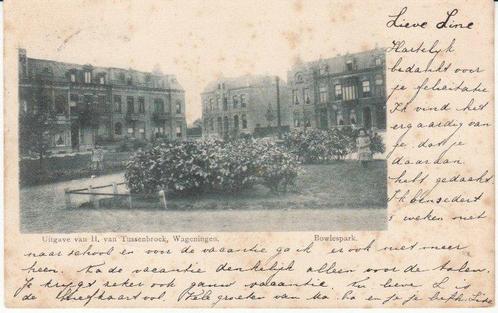 Lieve Line
Hartelijk
bedankt voor
je felicitatie
Ik vind het
erg aardig van
je dat je
daaraan
hebt gedacht
Ik ben eerst
5 weken niet
Uitgave van H. van Tussenbroek, Wageningen.
Bowlespark.
naar school en voor de vacantie ga ik er ook niet meer
heen. Na de vacantie denkelijk alleen voor de talen.
Je krijgt zeker ook gauw vacantie. Nu lieve L is
de briefkaart vol. Vele groeten van Ma. Pa en je je liefh. Line